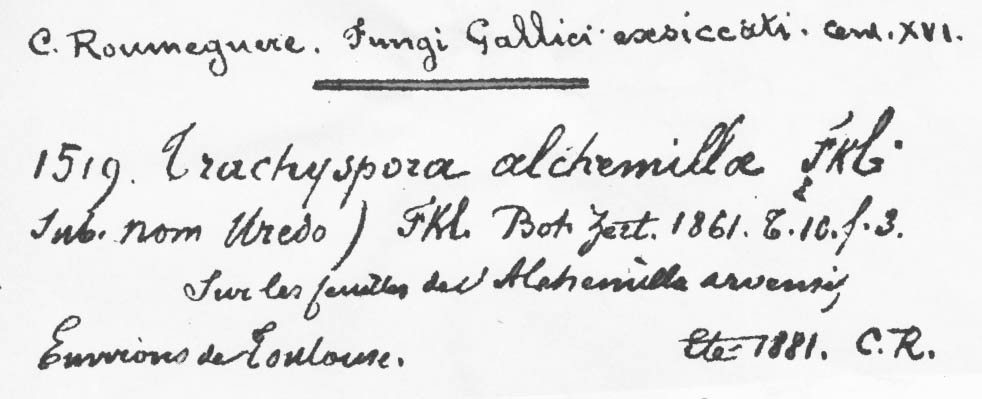 C. Roumeguere. Fungi Gallici exsiccati. Cent. XVI.
1519. Trachyspora alchemilla Fkl.
Sub. nom Uredo) Fkl. Bot. Zeit. 1861. t. 10. f. 3.
Sur les feuilles de l'Alchemilla arvensis
Environs de Toulouse. Eté 1881. C. R.